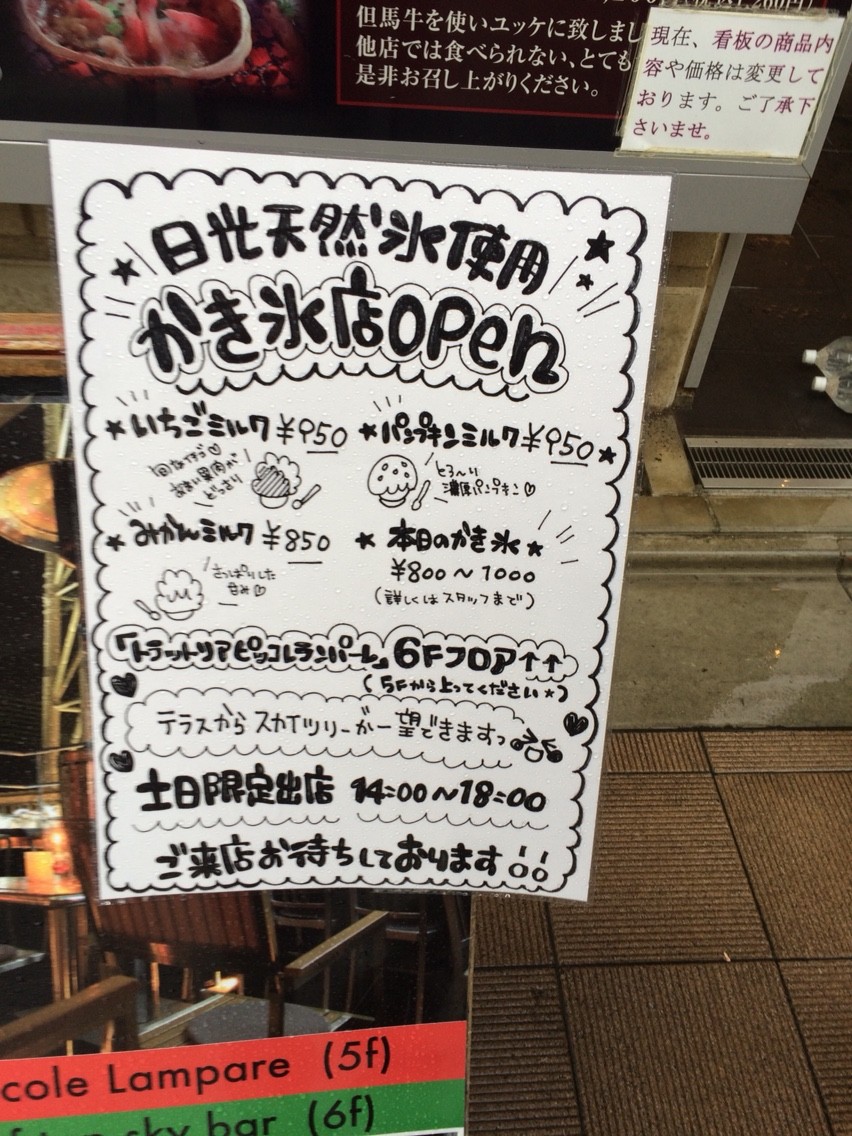 但馬牛を使いユッケに致しまし
他店では食べられない、とても
是非お召し上がりください。
現在、看板の商品内
容や価格は変更して
おります。ご了承下
さいませ。
日光天然氷使用
かき氷店open
★いちごミルク ¥950
あまい果肉が
どっさり
★パンプキンミルク ¥950★
とろ〜り
濃厚パンプキン♡
★みかんミルク ¥850
さっぱりした
甘み♡
★本日のかき氷★
¥800〜1000
(詳しくはスタッフまで)
「トラットリアピッコロランパーレ」6Fフロア↑↑
(5Fから上ってください★)
テラスからスカイツリーが一望できますっ
土日限定出店 14:00〜18:00
ご来店お待ちしております!!
cole Lampare (5f)
sky bar (6f)